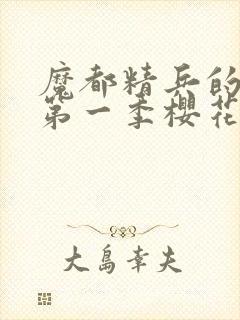 魔都精兵的
第一季櫻花
大島幸夫